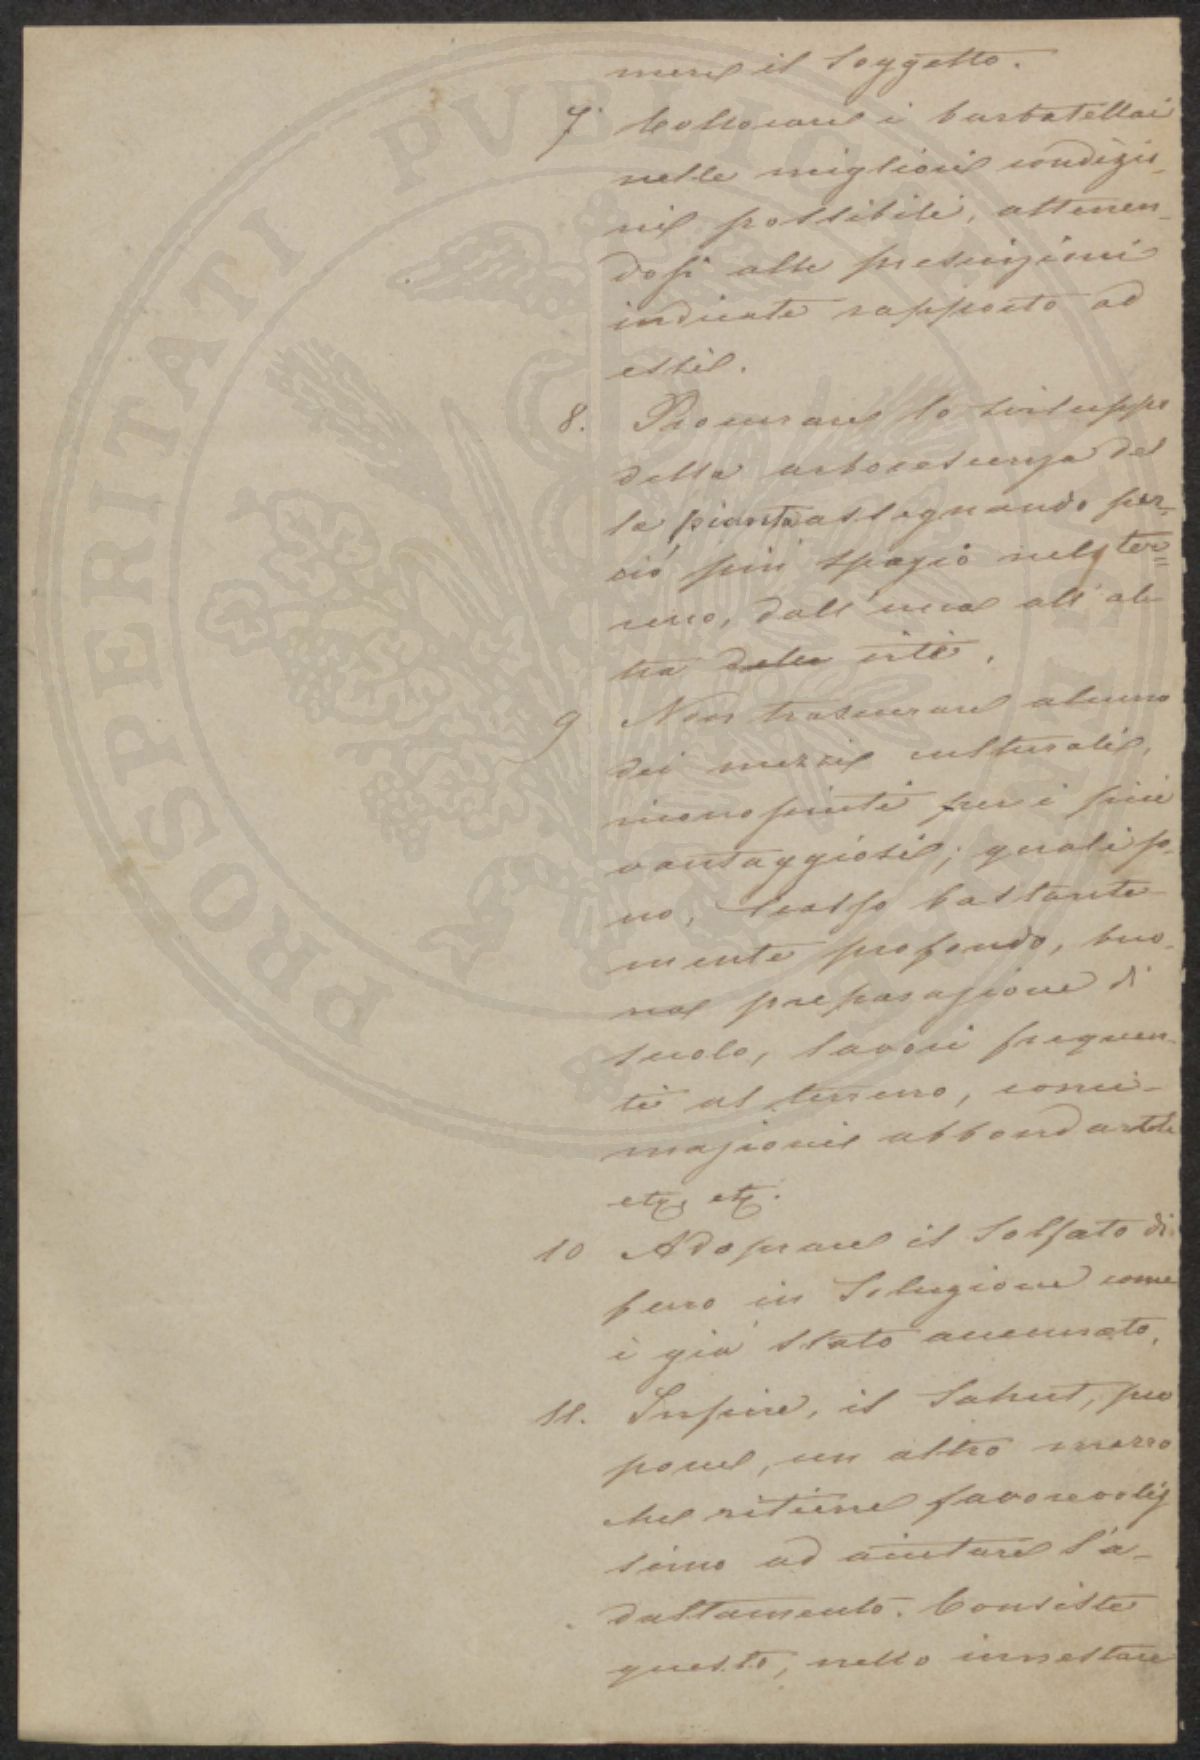 mere il soggetto.
7. Collocare i barbatellai
nelle migliori condizio-
ni possibili, attenen-
dosi alle prescrizioni
indicate rapporto ad
essi.
8. Procurare lo sviluppo
della arborescenza del
la pianta assegnando per-
ciò più spazio nel ter=
reno, dall'una all'al-
tra delle viti.
9 Non trascurare alcuno
dei mezzi culturali,
riconosciuti per i più
vantaggiosi; quali so-
no, scasso bastante-
mente profondo, buo-
na preparazione di
suolo, lavori frequen-
ti al terreno, conci-
mazioni abbondanti
etc, etc.
10 Adoprare il Solfato di
ferro in Soluzione come
è già stato accennato.
11. Infine, il Sahut, pro
pone, un altro mezzo
che ritiene favorevolis
simo ad aiutare l'a-
dattamento. Consiste
questo, nello innestare
PROSPERITATI PVBLICAE